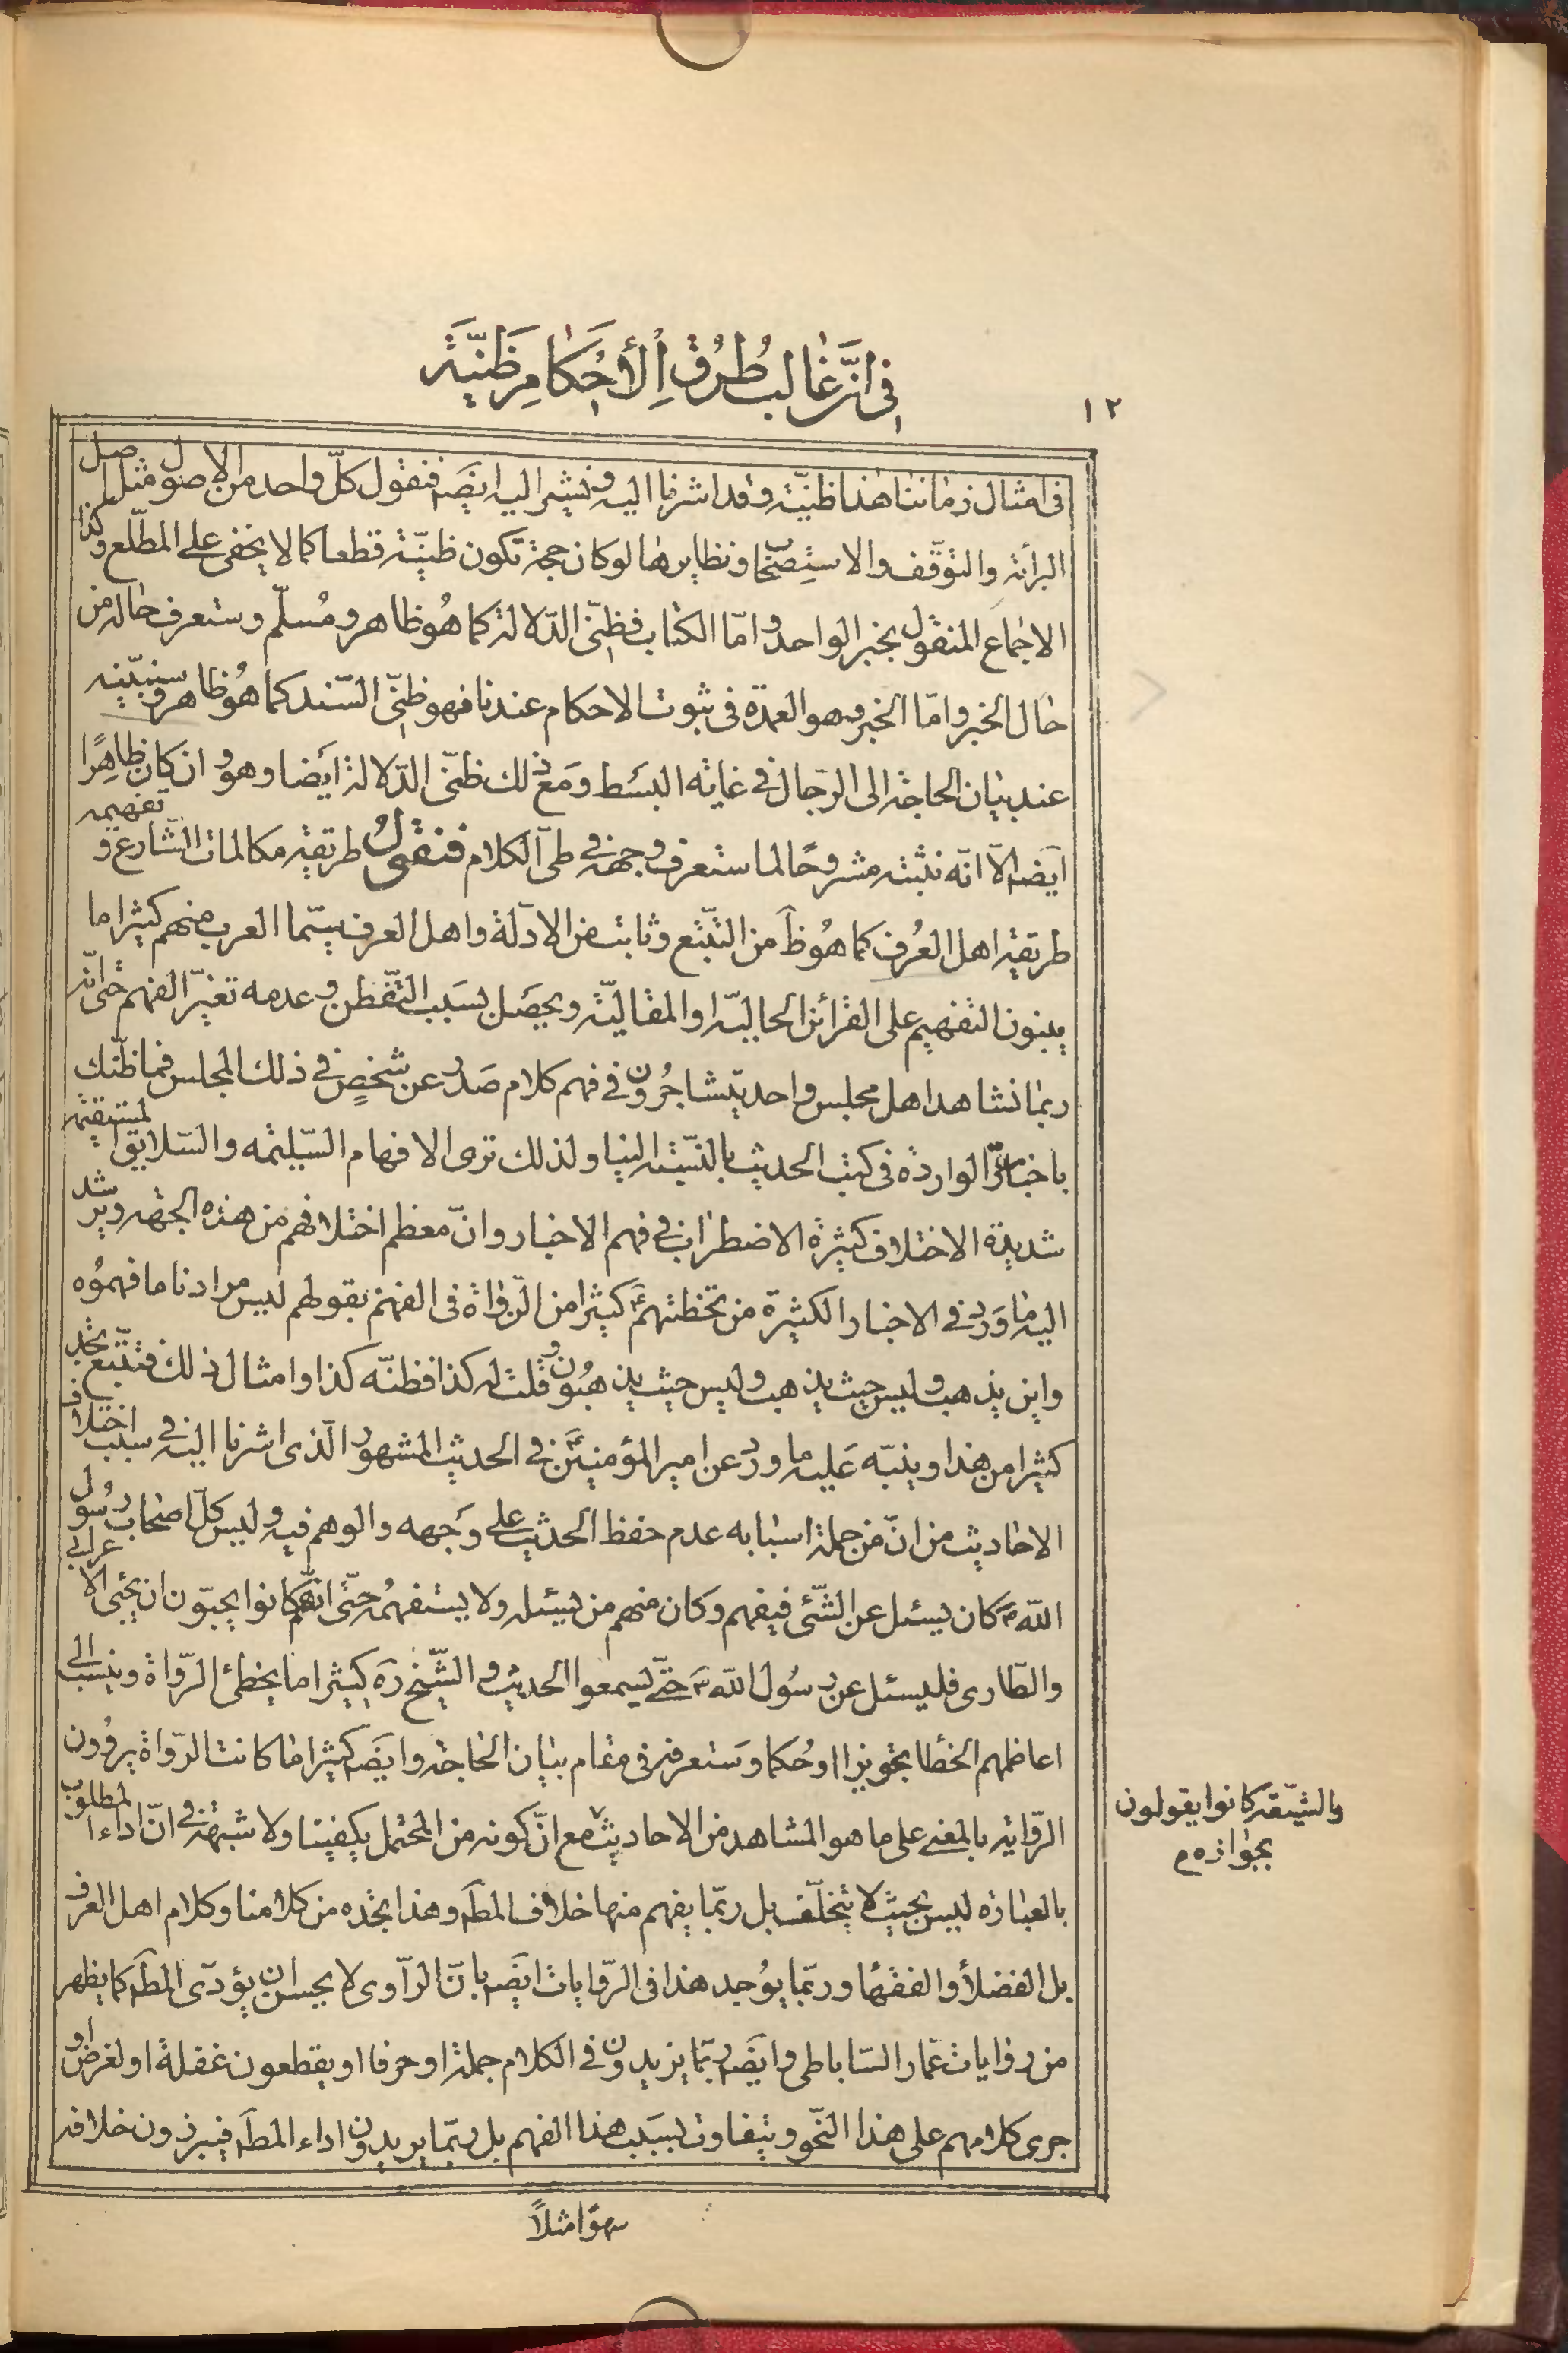 ١٢
في ان غالب طرق الأحكام ظنية
في امثال زماننا هذا ظنيّة وقد اشرنا اليه ونشير اليه ايضَ فنقول كلّ واحد من الاصول مثل اصل
البرائة والتوقّف والاستصحاب ونظايرها لو كان حجة تكون ظنيّة قطعا كما لا يخفى على المطّلع وكذا
الاجماع المنقول بخبر الواحد وامّا الكتاب فظنّى الدّلالة كما هو ظاهر ومسلّم وستعرف حاله من
حال الخبر وامّا الخبر وهو العمدة فى ثبوت الاحكام عندنا فهو ظنّى السّند كما هو ظاهر وسنبيّنه
عند بيان الحاجة الى الرّجال فى غاية البسط ومع ذلك ظنّى الدّلالة ايضا وهو وان كان ظاهرًا
ايضَ الّا انّه نثبته مشروحًا لما ستعرف وجهه فى طىّ الكلام فنقول طريقة مكالمات الشّارع وتفهيمه
طريقة اهل العرف كما هو ظَ من التّتبّع وثابت من الادلّة واهل العرف سيّما العرب منهم كثيرا ما
يبنون التفهيم على القرائن الحاليّة او المقاليّة ويحصل بسبب التّفطن وعدمه تغيّر الفهم حتى انّه
ربما نشاهد اهل مجلس واحد يتشاجرون فى فهم كلام صدر عن شخصٍ فى ذلك المجلس فما ظنّك
باخبارنا الواردة فى كتب الحديث بالنّسبة الينا ولذلك ترى الافهام السّليمة والسّلايق المستقيمة
شديدة الاختلاف كثيرة الاضطراب فى فهم الاخبار وانّ معظم اختلافهم من هذه الجهة ويرشد
اليه ما ورد فى الاخبار الكثيرة من تخطئتهم ع كثيرا من الرّواة فى الفهم بقولهم ليس مرادنا ما فهموه
واين يذهب وليس حيث يذهب وليس حيث يذهبون وقلت له كذا فظنّه كذا وامثال ذلك فتتبّع تجد
كثيرا من هذا وينبّه عليه ما ورد عن امير المؤمنين ع فى الحديث المشهور الّذى اشرنا اليه فى سبب اختلاف
الاحاديث من انّ من جملة اسبابه عدم حفظ الحديث على وجهه والوهم فيه وليس كلّ اصحاب رسول
الله ص كان يسئل عن الشّئى فيفهم وكان منهم من يسئله ولا يستفهمه حتّى انّهم كانوا يحبّون ان يجئى الاعرابي
والطّارى فليسئل عن رسول الله ص حتّى يسمعوا الحديث والشّيخ ره كثيرا ما يخطئ الرّواة وينسب الى
اعاظمهم الخطا تجويزا او حُكما وستعرفه فى مقام بيان الحاجة وايضَ كثيرا ما كانت الرّواة يروون
الرّواية بالمعنى على ما هو المشاهد من الاحاديث مع انّ كونه من المحتمل يكفينا ولا شبهة فى انّ اداء المطلوب
بالعبارة ليس بحيث لا يتخلّف بل ربّما يفهم منها خلاف المطَ وهذا نجده من كلامنا وكلام اهل العرف
بل الفضلاء والفقهاء وربّما يوجد هذا فى الرّوايات ايضَ بانّ الرّاوى لا يحسن ان يؤدّى المطَ كما يظهر
من روايات عمّار السّاباطى وايضَ ربّما يزيدون فى الكلام جملة او حرفا او يقطعون غفلة او لغرض او
جرى كلامهم على هذا النّحو ويتفاوت بسبب هذا الفهم بل ربّما يريدون اداء المطَ فيبرزون خلافه
والشيعة كانوا يقولون
بجوازه م
سهوًا مثلاً